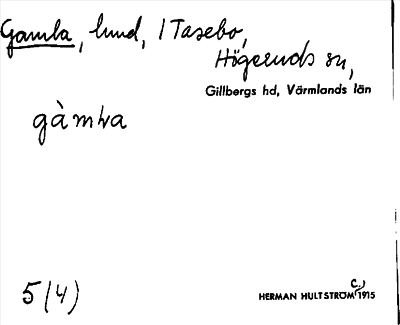 Gamla, lund, 1 Tasebo,
Högeruds sn,
Gillbergs hd, Värmlands län
gàmla
5(4)
HERMAN HULTSTRÖM c.) 1915